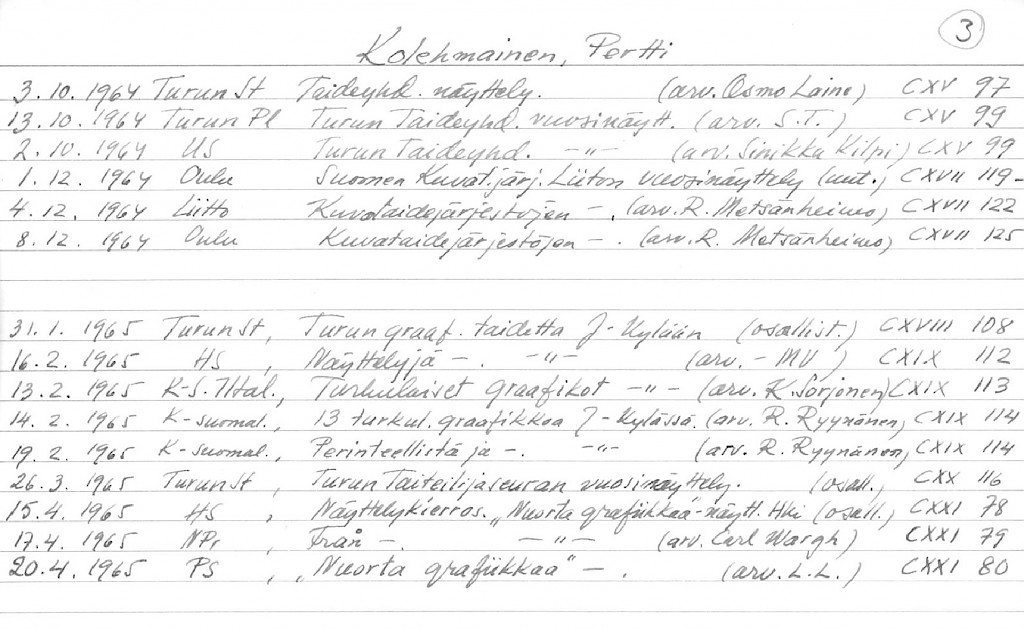 3
Kolehmainen, Pertti
3.10.1964 Turun St Taideyhd. näyttely. (arv. Osmo Laine) CXV 97
13.10.1964 Turun Pl Turun Taideyhd. vuosinäytt. (arv. S.T.) CXV 99
2.10.1964 US Turun Taideyhd. -"- (arv. Sinikka Kilpi) CXV 99
1.12.1964 Oulu Suomen Kuvat.järj. Liiton vuosinäyttely (uut.) CXVII 119-
4.12.1964 Liitto Kuvataidejärjestöjen -. (arv. R. Metsänheimo) CXVII 122
8.12.1964 Oulu Kuvataidejärjestöjen -. (arv. R. Metsänheimo) CXVII 125
31.1.1965 Turun St, Turun graaf. taidetta J-Kylään (osallist.) CXVIII 108
16.2.1965 HS, Näyttelyjä -. -"- (arv. - MV) CXIX 112
13.2.1965 K-S. Ilhal., Turkulaiset graafikot -"- (arv. K. Sorjonen) CXIX 113
14.2.1965 K-suomal., 13 turkul. graafikkoa J-Kylässä. (arv. R. Ryynänen, CXIX 114
19.2.1965 K-suomal., Perinteellistä ja -. -"- (arv. R. Ryynänen, CXIX 114
26.3.1965 Turun St, Turun Taiteilijaseuran vuosinäyttely. (osall.) CXX 116
15.4.1965 HS, Näyttelykierros. "Nuorta grafiikkaa"-näytt. Hki (osall.) CXXI 78
17.4.1965 NPr, Från -. -"- (arv. Carl Wargh) CXXI 79
20.4.1965 PS, "Nuorta grafiikkaa" -. (arv. L.L.) CXXI 80